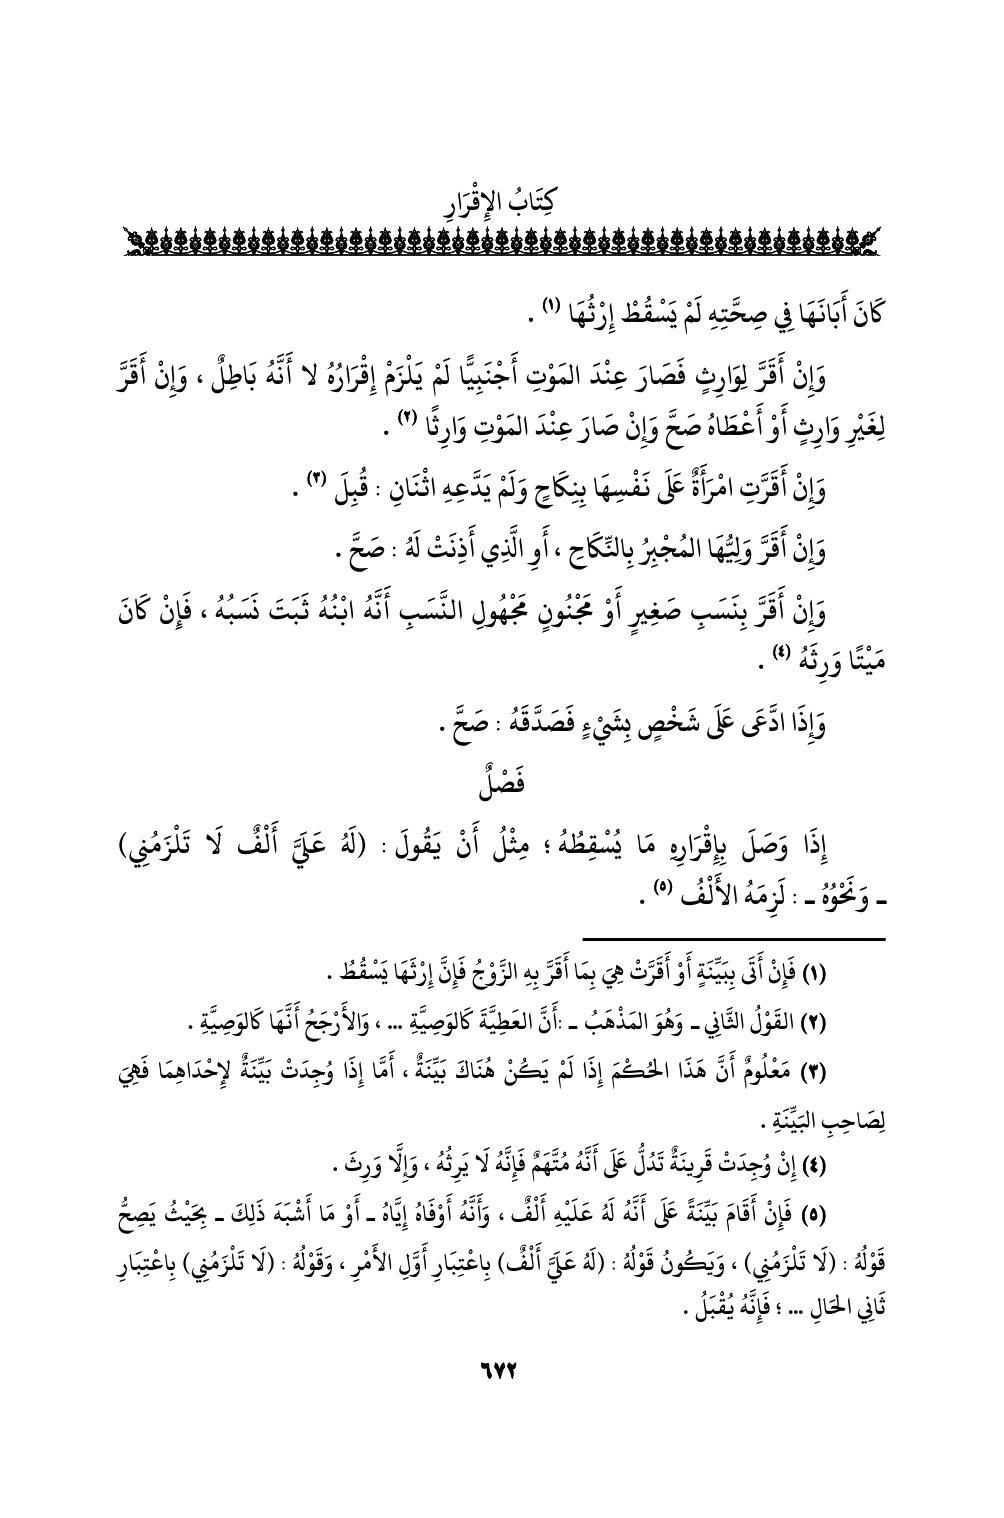 كِتَابُ الإِقْرَارِ
كَانَ أَبَانَهَا فِي صِحَّتِهِ لَمْ يَسْقُطْ إِرْثُهَا (١) .
وَإِنْ أَقَرَّ لِوَارِثٍ فَصَارَ عِنْدَ المَوْتِ أَجْنَبِيًّا لَمْ يَلْزَمْ إِقْرَارُهُ لا أَنَّهُ بَاطِلٌ ، وَإِنْ أَقَرَّ
لِغَيْرِ وَارِثٍ أَوْ أَعْطَاهُ صَحَّ وَإِنْ صَارَ عِنْدَ المَوْتِ وَارِثًا (٢) .
وَإِنْ أَقَرَّتِ امْرَأَةٌ عَلَى نَفْسِهَا بِنِكَاحٍ وَلَمْ يَدَّعِهِ اثْنَانِ : قُبِلَ (٣) .
وَإِنْ أَقَرَّ وَلِيُّهَا المُجْبِرُ بِالنِّكَاحِ ، أَوِ الَّذِي أَذِنَتْ لَهُ : صَحَّ .
وَإِنْ أَقَرَّ بِنَسَبِ صَغِيرٍ أَوْ مَجْنُونٍ مَجْهُولِ النَّسَبِ أَنَّهُ ابْنُهُ ثَبَتَ نَسَبُهُ ، فَإِنْ كَانَ
مَيْتًا وَرِثَهُ (٤) .
وَإِذَا ادَّعَى عَلَى شَخْصٍ بِشَيْءٍ فَصَدَّقَهُ : صَحَّ .
فَصْلٌ
إِذَا وَصَلَ بِإِقْرَارِهِ مَا يُسْقِطُهُ ؛ مِثْلُ أَنْ يَقُولَ : (لَهُ عَلَيَّ أَلْفٌ لَا تَلْزَمُنِي)
ـ وَنَحْوُهُ ـ : لَزِمَهُ الأَلْفُ (٥) .
(١) فَإِنْ أَتَى بِبَيِّنَةٍ أَوْ أَقَرَّتْ هِيَ بِمَا أَقَرَّ بِهِ الزَّوْجُ فَإِنَّ إِرْثَهَا يَسْقُطُ .
(٢) القَوْلُ الثَّانِي ـ وَهُوَ المَذْهَبُ ـ :أَنَّ العَطِيَّةَ كَالوَصِيَّةِ ... ، وَالأَرْجَحُ أَنَّهَا كَالوَصِيَّةِ .
(٣) مَعْلُومٌ أَنَّ هَذَا الحُكْمَ إِذَا لَمْ يَكُنْ هُنَاكَ بَيِّنَةٌ ، أَمَّا إِذَا وُجِدَتْ بَيِّنَةٌ لإِحْدَاهِمَا فَهِيَ
لِصَاحِبِ البَيِّنَةِ .
(٤) إِنْ وُجِدَتْ قَرِينَةٌ تَدُلُّ عَلَى أَنَّهُ مُتَّهَمٌ فَإِنَّهُ لَا يَرِثُهُ ، وَإِلَّا وَرِثَ .
(٥) فَإِنْ أَقَامَ بَيِّنَةً عَلَى أَنَّهُ لَهُ عَلَيْهِ أَلْفٌ ، وَأَنَّهُ أَوْفَاهُ إِيَّاهُ ـ أَوْ مَا أَشْبَهَ ذَلِكَ ـ بِحَيْثُ يَصِحُّ
قَوْلُهُ : (لَا تَلْزَمُنِي) ، وَيَكُونُ قَوْلُهُ : (لَهُ عَلَيَّ أَلْفٌ) بِاعْتِبَارِ أَوَّلِ الأَمْرِ ، وَقَوْلُهُ : (لَا تَلْزَمُنِي) بِاعْتِبَارِ
ثَانِي الحَالِ ... ؛ فَإِنَّهُ يُقْبَلُ .
٦٧٢